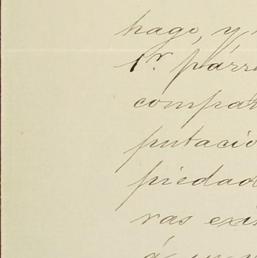 hago, y
Sr. párro
compar
putacio
piedad
ras exis